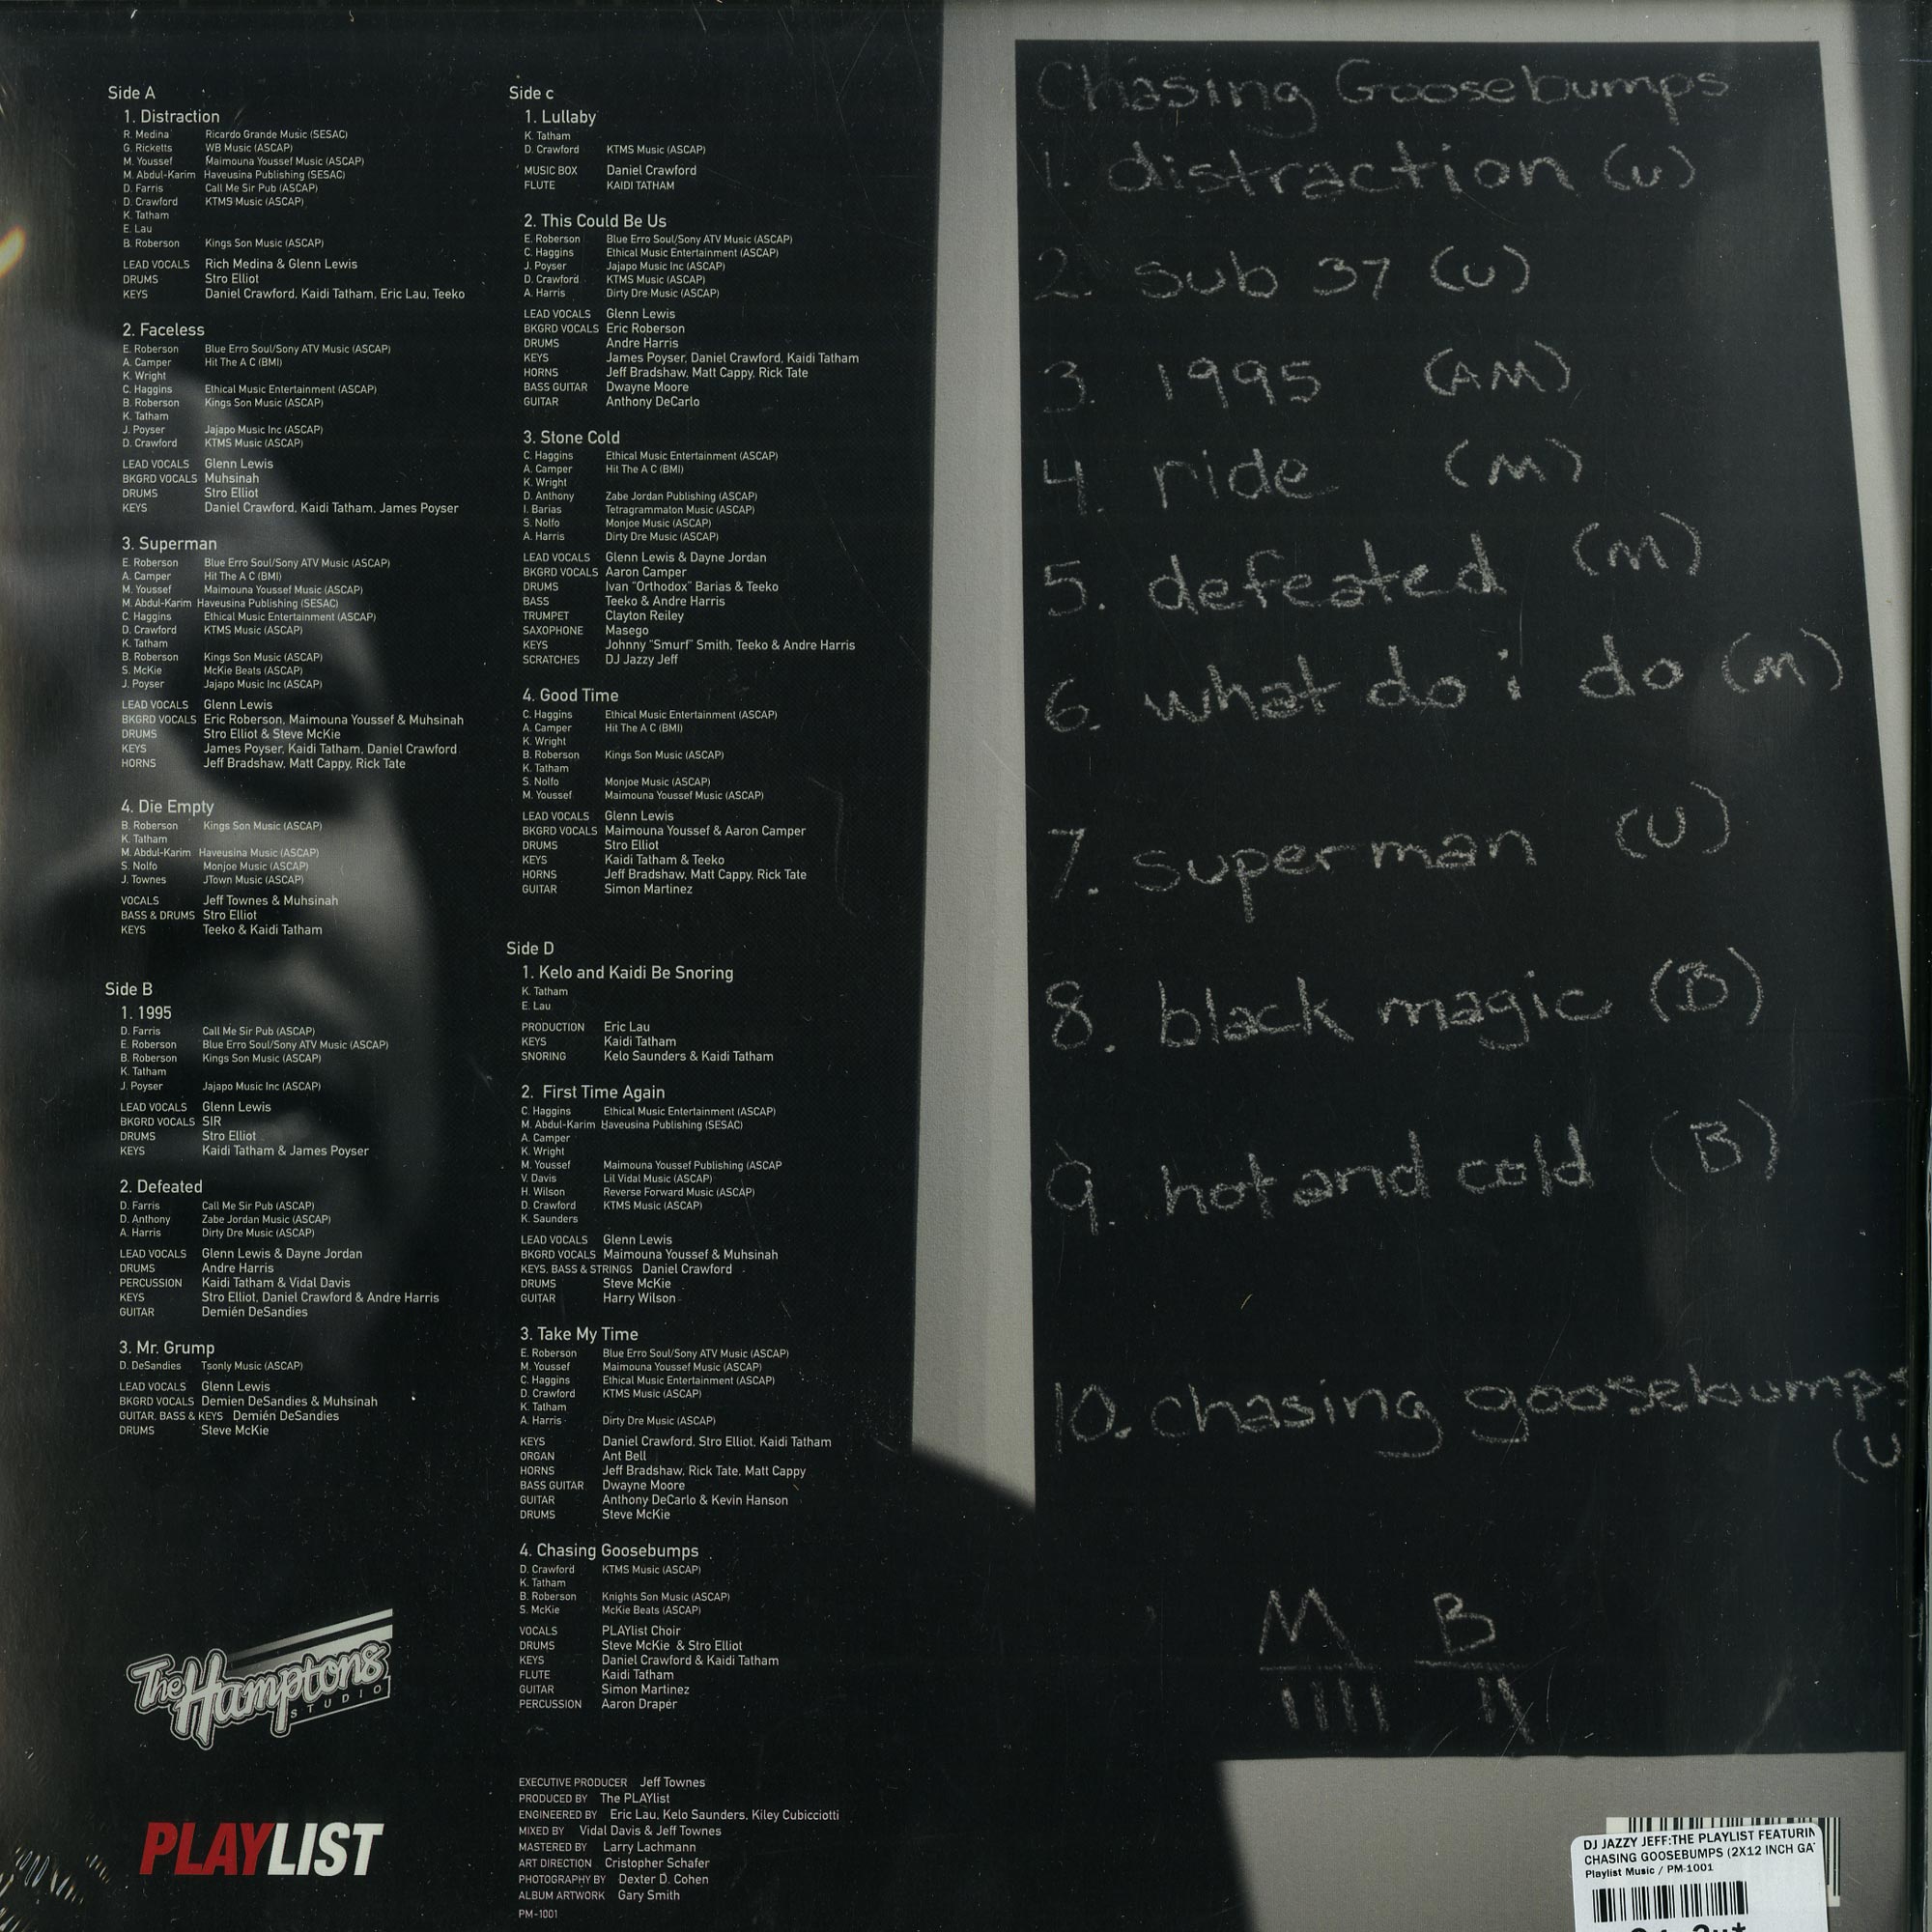 Side A
1. Distraction
R. Medina Ricardo Grande Music (SESAC)
G. Ricketts WB Music (ASCAP)
M. Youssef Maimouna Youssef Music (ASCAP)
M. Abdul-Karim Haveusina Publishing (SESAC)
D. Farris Call Me Sir Pub (ASCAP)
D. Crawford KTMS Music (ASCAP)
K. Tatham
E. Lau
B. Roberson Kings Son Music (ASCAP)
LEAD VOCALS Rich Medina & Glenn Lewis
DRUMS Stro Elliot
KEYS Daniel Crawford, Kaidi Tatham, Eric Lau, Teeko
2. Faceless
E. Roberson Blue Erro Soul/Sony ATV Music (ASCAP)
A. Camper Hit The A C (BMI)
K. Wright
C. Haggins Ethical Music Entertainment (ASCAP)
B. Roberson Kings Son Music (ASCAP)
K. Tatham
J. Poyser Jajapo Music Inc (ASCAP)
D. Crawford KTMS Music (ASCAP)
LEAD VOCALS Glenn Lewis
BKGRD VOCALS Muhsinah
DRUMS Stro Elliot
KEYS Daniel Crawford, Kaidi Tatham, James Poyser
3. Superman
E. Roberson Blue Erro Soul/Sony ATV Music (ASCAP)
A. Camper Hit The A C (BMI)
M. Youssef Maimouna Youssef Music (ASCAP)
M. Abdul-Karim Haveusina Publishing (SESAC)
C. Haggins Ethical Music Entertainment (ASCAP)
D. Crawford KTMS Music (ASCAP)
K. Tatham
B. Roberson Kings Son Music (ASCAP)
S. McKie McKie Beats (ASCAP)
J. Poyser Jajapo Music Inc (ASCAP)
LEAD VOCALS Glenn Lewis
BKGRD VOCALS Eric Roberson, Maimouna Youssef & Muhsinah
DRUMS Stro Elliot & Steve McKie
KEYS James Poyser, Kaidi Tatham, Daniel Crawford
HORNS Jeff Bradshaw, Matt Cappy, Rick Tate
4. Die Empty
B. Roberson Kings Son Music (ASCAP)
K. Tatham
M. Abdul-Karim Haveusina Music (ASCAP)
S. Nolfo Monjoe Music (ASCAP)
J. Townes JTown Music (ASCAP)
VOCALS Jeff Townes & Muhsinah
BASS & DRUMS Stro Elliot
KEYS Teeko & Kaidi Tatham
Side B
1. 1995
D. Farris Call Me Sir Pub (ASCAP)
E. Roberson Blue Erro Soul/Sony ATV Music (ASCAP)
B. Roberson Kings Son Music (ASCAP)
K. Tatham
J. Poyser Jajapo Music Inc (ASCAP)
LEAD VOCALS Glenn Lewis
BKGRD VOCALS SIR
DRUMS Stro Elliot
KEYS Kaidi Tatham & James Poyser
2. Defeated
D. Farris Call Me Sir Pub (ASCAP)
D. Anthony Zabe Jordan Music (ASCAP)
A. Harris Dirty Dre Music (ASCAP)
LEAD VOCALS Glenn Lewis & Dayne Jordan
DRUMS Andre Harris
PERCUSSION Kaidi Tatham & Vidal Davis
KEYS Stro Elliot, Daniel Crawford & Andre Harris
GUITAR Demién DeSandies
3. Mr. Grump
D. DeSandies Tsonly Music (ASCAP)
LEAD VOCALS Glenn Lewis
BKGRD VOCALS Demien DeSandies & Muhsinah
GUITAR, BASS & KEYS Demién DeSandies
DRUMS Steve McKie
The Hamptons
STUDIO
PLAYLIST
Side c
1. Lullaby
K. Tatham
D. Crawford KTMS Music (ASCAP)
MUSIC BOX Daniel Crawford
FLUTE KAIDI TATHAM
2. This Could Be Us
E. Roberson Blue Erro Soul/Sony ATV Music (ASCAP)
C. Haggins Ethical Music Entertainment (ASCAP)
J. Poyser Jajapo Music Inc (ASCAP)
D. Crawford KTMS Music (ASCAP)
A. Harris Dirty Dre Music (ASCAP)
LEAD VOCALS Glenn Lewis
BKGRD VOCALS Eric Roberson
DRUMS Andre Harris
KEYS James Poyser, Daniel Crawford, Kaidi Tatham
HORNS Jeff Bradshaw, Matt Cappy, Rick Tate
BASS GUITAR Dwayne Moore
GUITAR Anthony DeCarlo
3. Stone Cold
C. Haggins Ethical Music Entertainment (ASCAP)
A. Camper Hit The A C (BMI)
K. Wright
D. Anthony Zabe Jordan Publishing (ASCAP)
I. Barias Tetragrammaton Music (ASCAP)
S. Nolfo Monjoe Music (ASCAP)
A. Harris Dirty Dre Music (ASCAP)
LEAD VOCALS Glenn Lewis & Dayne Jordan
BKGRD VOCALS Aaron Camper
DRUMS Ivan "Orthodox" Barias & Teeko
BASS Teeko & Andre Harris
TRUMPET Clayton Reiley
SAXOPHONE Masego
KEYS Johnny "Smurf" Smith, Teeko & Andre Harris
SCRATCHES DJ Jazzy Jeff
4. Good Time
C. Haggins Ethical Music Entertainment (ASCAP)
A. Camper Hit The A C (BMI)
K. Wright
B. Roberson Kings Son Music (ASCAP)
K. Tatham
S. Nolfo Monjoe Music (ASCAP)
M. Youssef Maimouna Youssef Music (ASCAP)
LEAD VOCALS Glenn Lewis
BKGRD VOCALS Maimouna Youssef & Aaron Camper
DRUMS Stro Elliot
KEYS Kaidi Tatham & Teeko
HORNS Jeff Bradshaw, Matt Cappy, Rick Tate
GUITAR Simon Martinez
Side D
1. Kelo and Kaidi Be Snoring
K. Tatham
E. Lau
PRODUCTION Eric Lau
KEYS Kaidi Tatham
SNORING Kelo Saunders & Kaidi Tatham
2. First Time Again
C. Haggins Ethical Music Entertainment (ASCAP)
M. Abdul-Karim Haveusina Publishing (SESAC)
A. Camper
K. Wright
M. Youssef Maimouna Youssef Publishing (ASCAP
V. Davis Lil Vidal Music (ASCAP)
H. Wilson Reverse Forward Music (ASCAP)
D. Crawford KTMS Music (ASCAP)
K. Saunders
LEAD VOCALS Glenn Lewis
BKGRD VOCALS Maimouna Youssef & Muhsinah
KEYS, BASS & STRINGS Daniel Crawford
DRUMS Steve McKie
GUITAR Harry Wilson
3. Take My Time
E. Roberson Blue Erro Soul/Sony ATV Music (ASCAP)
M. Youssef Maimouna Youssef Music (ASCAP)
C. Haggins Ethical Music Entertainment (ASCAP)
D. Crawford KTMS Music (ASCAP)
K. Tatham
A. Harris Dirty Dre Music (ASCAP)
KEYS Daniel Crawford, Stro Elliot, Kaidi Tatham
ORGAN Ant Bell
HORNS Jeff Bradshaw, Rick Tate, Matt Cappy
BASS GUITAR Dwayne Moore
GUITAR Anthony DeCarlo & Kevin Hanson
DRUMS Steve McKie
4. Chasing Goosebumps
D. Crawford KTMS Music (ASCAP)
K. Tatham
B. Roberson Knights Son Music (ASCAP)
S. McKie McKie Beats (ASCAP)
VOCALS PLAYlist Choir
DRUMS Steve McKie & Stro Elliot
KEYS Daniel Crawford & Kaidi Tatham
FLUTE Kaidi Tatham
GUITAR Simon Martinez
PERCUSSION Aaron Draper
EXECUTIVE PRODUCER Jeff Townes
PRODUCED BY The PLAYlist
ENGINEERED BY Eric Lau, Kelo Saunders, Kiley Cubicciotti
MIXED BY Vidal Davis & Jeff Townes
MASTERED BY Larry Lachmann
ART DIRECTION Cristopher Schafer
PHOTOGRAPHY BY Dexter D. Cohen
ALBUM ARTWORK Gary Smith
PM-1001
Chasing Goosebumps
1. distraction (U)
2. sub 37 (U)
3. 1995 (AM)
4. ride (M)
5. defeated (M)
6. what do i do (M)
7. superman (U)
8. black magic (B)
9. hot and cold (B)
10. chasing goosebumps
(U
M B
DJ JAZZY JEFF:THE PLAYLIST FEATURIN
CHASING GOOSEBUMPS (2X12 INCH GA
Playlist Music / PM-1001